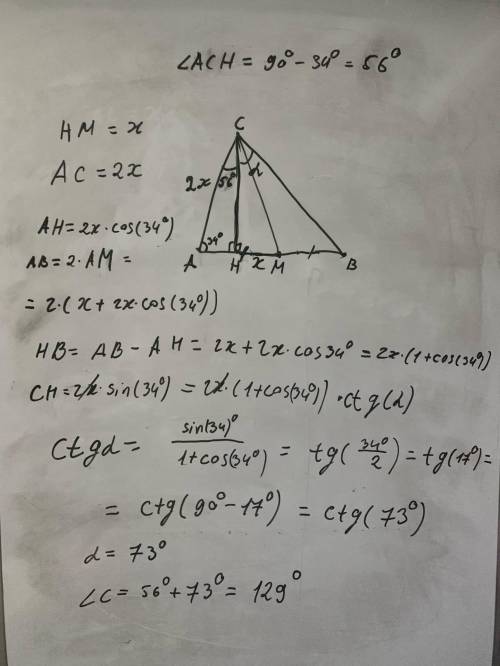 ∠ACH = 90° - 34° = 56°
HM = x
AC = 2x
C
2x 56° α
34°
A H x M B
AH = 2x·cos(34°)
AB = 2·AM =
= 2·(x + 2x·cos(34°))
HB = AB - AH = 2x + 2x·cos34° = 2x·(1+cos(34°))
CH = 2x·sin(34°) = 2x·(1+cos(34°))·ctg(α)
ctgα = sin(34)° / 1+cos(34°) = tg(34°/2) = tg(17°) =
= ctg(90° - 17°) = ctg(73°)
α = 73°
∠C = 56° + 73° = 129°